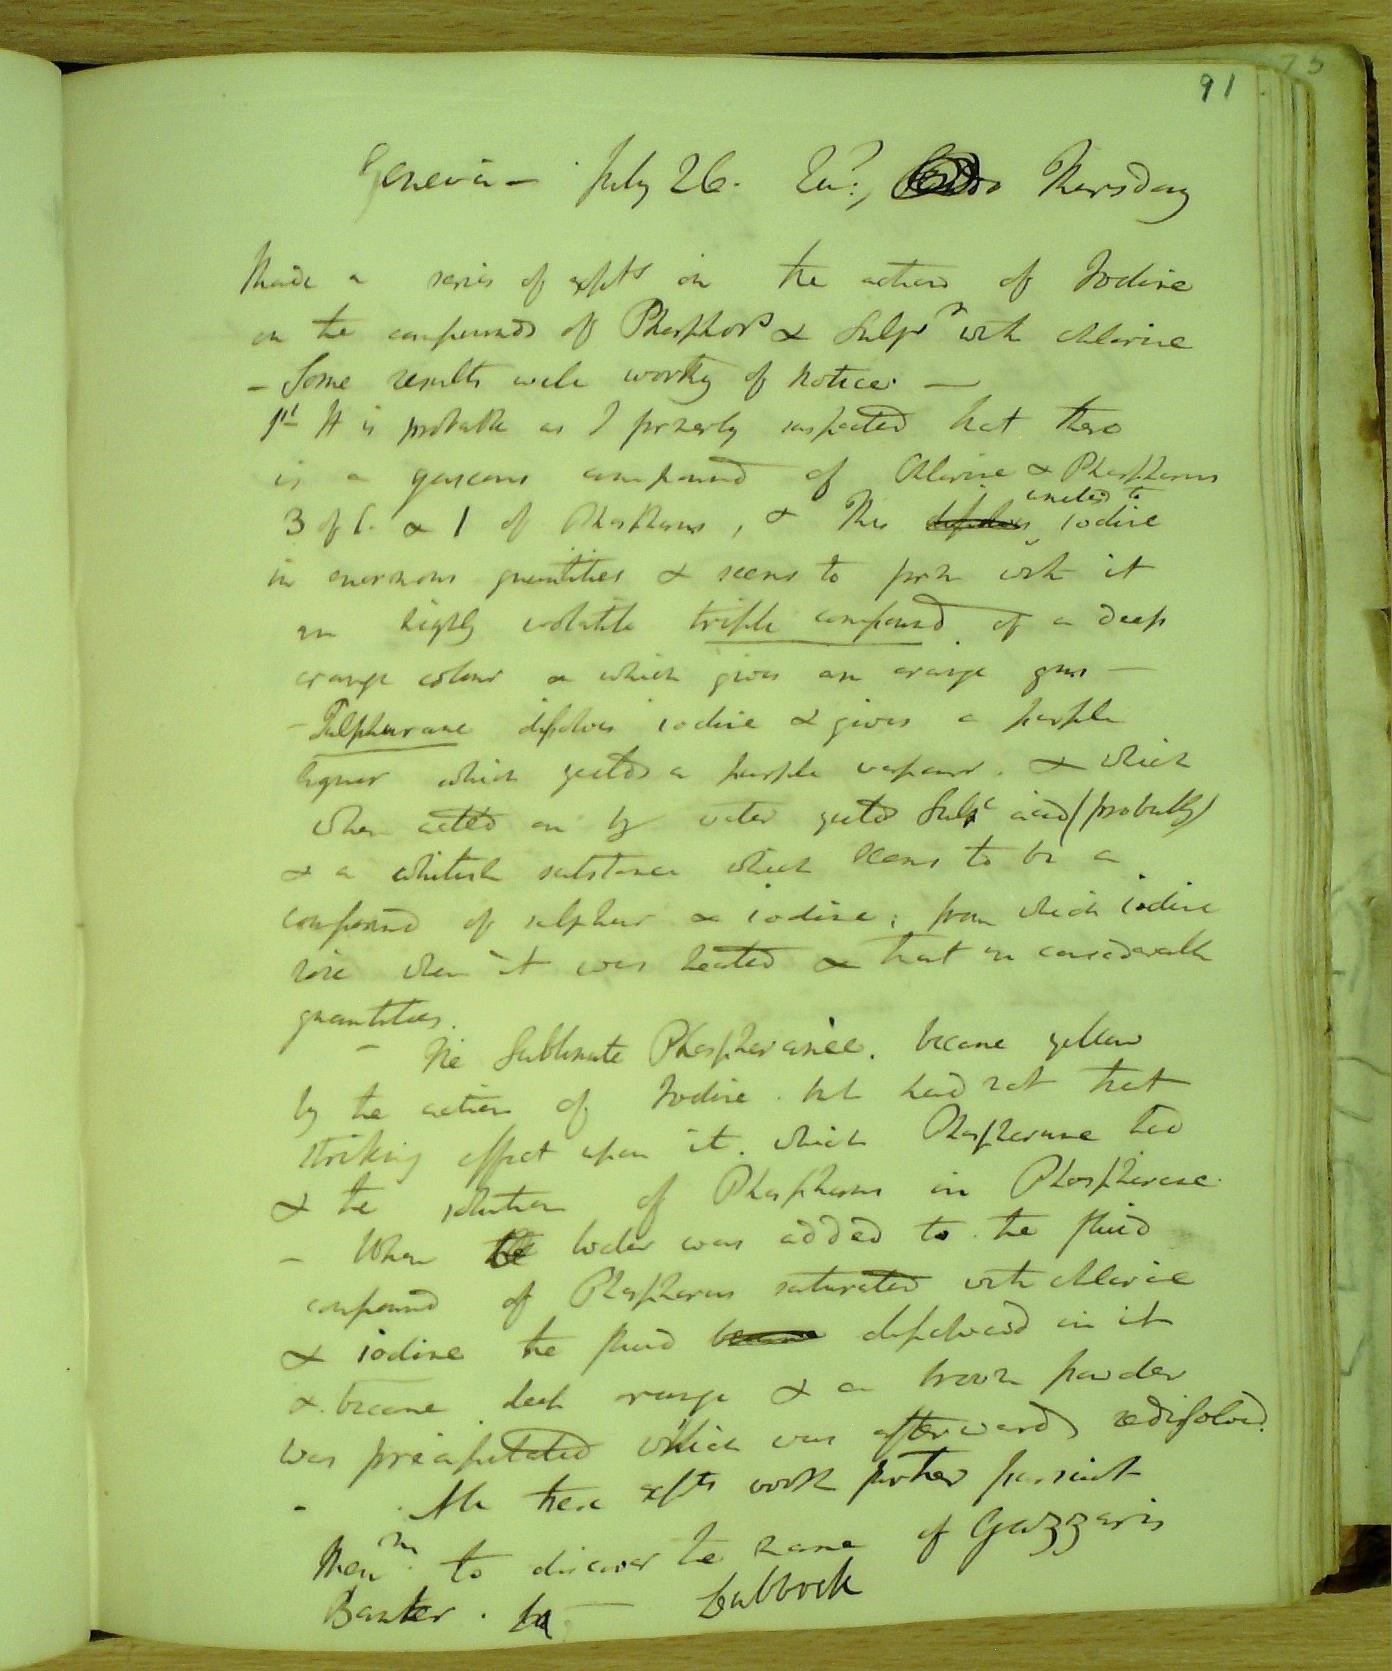 91
Geneva - July 26. Qu?, Thursday
Made a series of expts on the action of Iodine
on the compounds of Phosphors & Sulpr with chlorine
- Some results were worthy of notice. -
1st It is probable as I formerly suspected that there
is a gaseous compound of Chlorine & Phosphorus
3 of C. & 1 of Phosphorus, & this dissolves united to iodine
in enormous quantities & seems to form with it
an highly volatile triple compound of a deep
orange colour & which gives an orange gas -
- Sulphurane dissolves iodine & gives a purple
liquor which yields a purple vapour. & which
when acted on by water yields Sulpc acid (probably)
& a whitish substance which seems to be a
compound of sulphur & iodine; from which iodine
rose when it was heated & that in considerable
quantities.
- The Sublimate Phosphoranee. became yellow
by the action of Iodine. but had not that
striking effect upon it. which Phosphorane had
& the solution of Phosphorus in Phosphorane.
- When the water was added to the fluid
compound of Phosphorus saturated with chlorine
& iodine the fluid became dissolved in it
& became deep orange & a brown powder
was precipitated which was afterwards redissolved.
- All these expts worth further pursuit
Memm. to discover the name of Gazzaris
Banker. - Lubbock